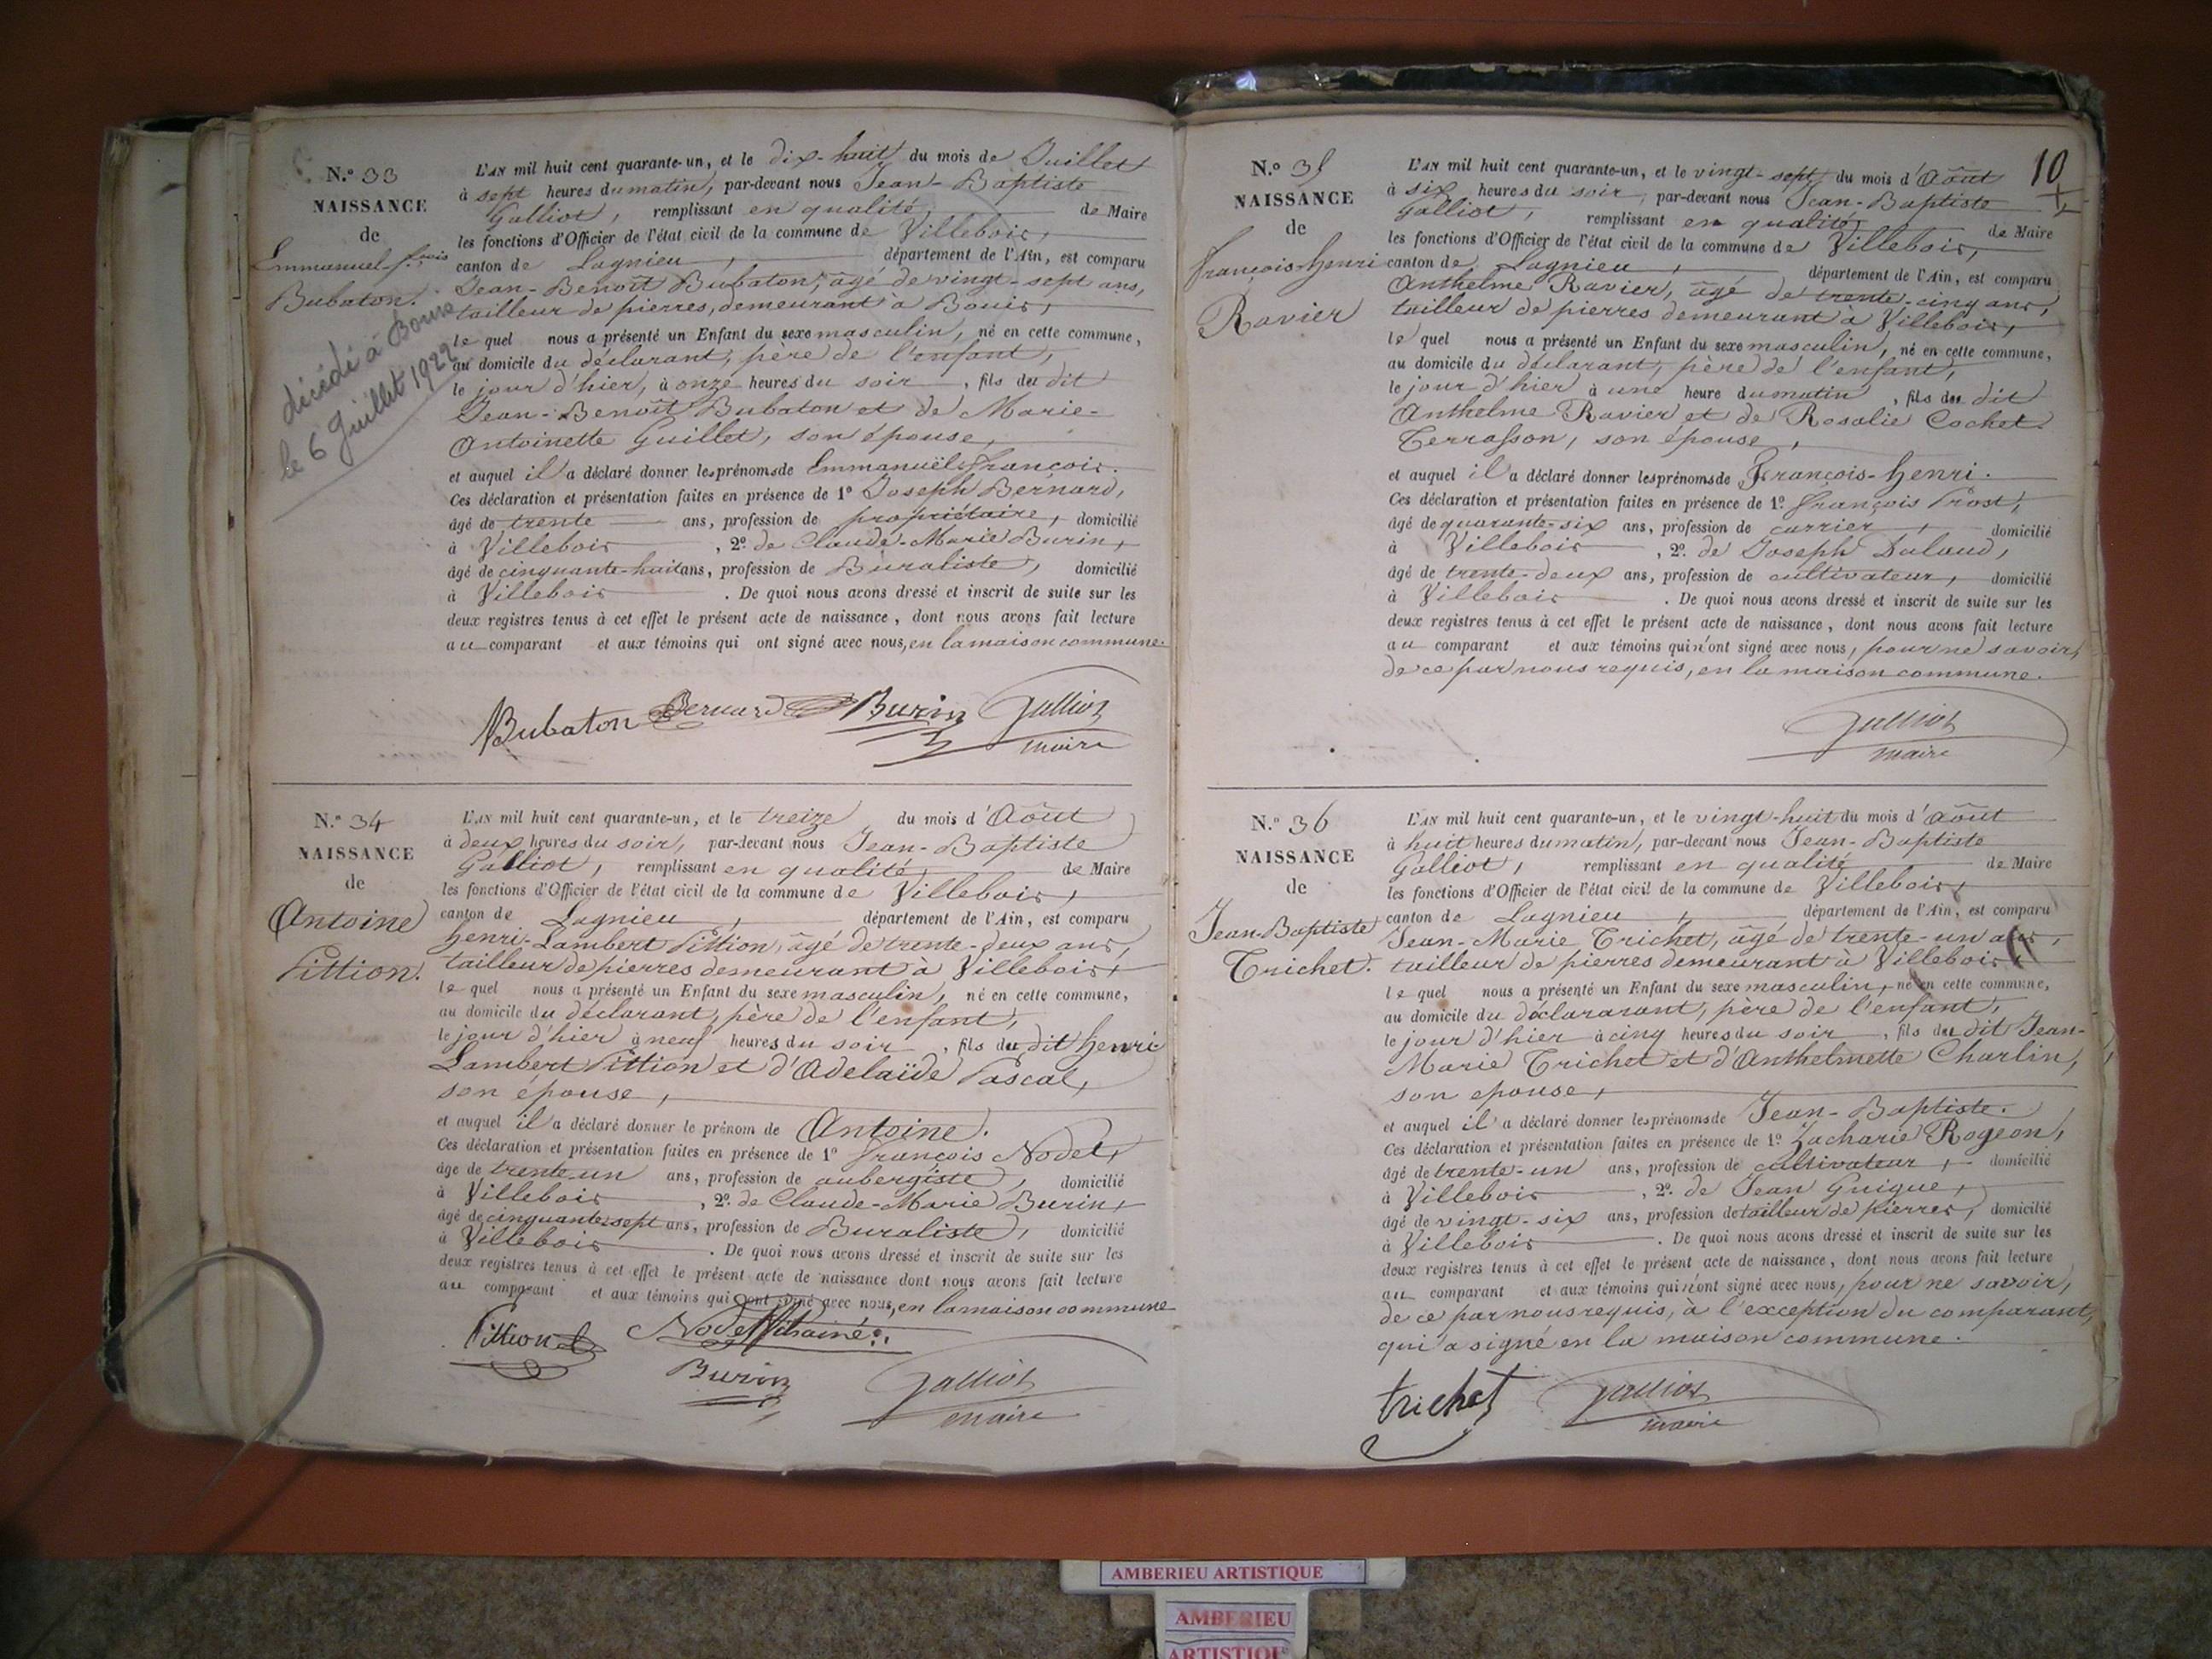 N.º 33
NAISSANCE
de
Emmanuel-f.çois
Bubaton.
décédé à Bourg
le 6 Juillet 1922
L'AN mil huit cent quarante-un, et le dix-huit du mois de Juillet
à sept heures du matin, par-devant nous Jean-Baptiste
Galliot, remplissant en qualité, de Maire
les fonctions d'Officier de l'état civil de la commune de Villebois,
canton de Lagnieu, département de l'Ain, est comparu
Jean-Benoît Bubaton, âgé de vingt-sept ans,
tailleur de pierres, demeurant à Bouis,
lequel nous a présenté un Enfant du sexe masculin, né en cette commune,
au domicile du déclarant, père de l'enfant,
le jour d'hier, à onze heures du soir, fils du dit
Jean-Benoît Bubaton et de Marie-
Antoinette Guillet, son épouse,
et auquel il a déclaré donner les prénoms de Emmanuël-françois.
Ces déclaration et présentation faites en présence de 1º Joseph Bernard,
âgé de trente ans, profession de propriétaire, domicilié
à Villebois, 2º de Claude-Marie Burin,
âgé de cinquante-huit ans, profession de Buraliste, domicilié
à Villebois. De quoi nous avons dressé et inscrit de suite sur les
deux registres tenus à cet effet le présent acte de naissance, dont nous avons fait lecture
au comparant et aux témoins qui ont signé avec nous, en la maison commune.
Bubaton Bernard Burin Galliot
maire
N.º 34
NAISSANCE
de
Antoine
Pittion.
L'AN mil huit cent quarante-un, et le treize du mois d'Août
à deux heures du soir, par-devant nous Jean-Baptiste
Galliot, remplissant en qualité, de Maire
les fonctions d'Officier de l'état civil de la commune de Villebois,
canton de Lagnieu, département de l'Ain, est comparu
henri-Lambert Pittion, âgé de trente-deux ans,
tailleur de pierres demeurant à Villebois,
lequel nous a présenté un Enfant du sexe masculin, né en cette commune,
au domicile du déclarant, père de l'enfant,
le jour d'hier à neuf heures du soir, fils du dit henri
Lambert Pittion et d'Adelaïde Pascal,
son épouse,
et auquel il a déclaré donner le prénom de Antoine.
Ces déclaration et présentation faites en présence de 1º françois Nodet,
âgé de trente-un ans, profession de aubergiste, domicilié
à Villebois, 2º. de Claude-Marie Burin,
âgé de cinquante-sept ans, profession de Buraliste, domicilié
à Villebois. De quoi nous avons dressé et inscrit de suite sur les
deux registres tenus à cet effet le présent acte de naissance dont nous avons fait lecture
au comparant et aux témoins qui ont signé avec nous, en la maison commune
Pittion Nodet
Burin Galliot
maire
10
N.º 35
NAISSANCE
de
françois-henri
Ravier
L'AN mil huit cent quarante-un, et le vingt-sept du mois d'Août
à six heures du soir, par-devant nous Jean-Baptiste
Galliot, remplissant en qualité, de Maire
les fonctions d'Officier de l'état civil de la commune de Villebois,
canton de Lagnieu, département de l'Ain, est comparu
Anthelme Ravier, âgé de trente-cinq ans,
tailleur de pierres demeurant à Villebois,
lequel nous a présenté un Enfant du sexe masculin, né en cette commune,
au domicile du déclarant, père de l'enfant,
le jour d'hier à une heure du matin, fils du dit
Anthelme Ravier et de Rosalie Cochet
Terrasson, son épouse,
et auquel il a déclaré donner les prénoms de François-henri.
Ces déclaration et présentation faites en présence de 1º. françois Prost,
âgé de quarante-six ans, profession de carrier, domicilié
à Villebois, 2º. de Joseph Dulaud,
âgé de trente-deux ans, profession de cultivateur, domicilié
à Villebois. De quoi nous avons dressé et inscrit de suite sur les
deux registres tenus à cet effet le présent acte de naissance, dont nous avons fait lecture
au comparant et aux témoins qui n'ont signé avec nous, pour ne savoir,
de ce par nous requis, en la maison commune.
Galliot
maire
N.º 36
NAISSANCE
de
Jean-Baptiste
Trichet.
L'AN mil huit cent quarante-un, et le vingt-huit du mois d'Août
à huit heures du matin, par-devant nous Jean-Baptiste
Galliot, remplissant en qualité de Maire
les fonctions d'Officier de l'état civil de la commune de Villebois,
canton de Lagnieu, département de l'Ain, est comparu
Jean-Marie Trichet, âgé de trente-un ans,
tailleur de pierres demeurant à Villebois,
lequel nous a présenté un Enfant du sexe masculin, né en cette commune,
au domicile du déclararant, père de l'enfant,
le jour d'hier à cinq heures du soir, fils du dit Jean-
Marie Trichet et d'Anthelmette Charlin,
son epouse,
et auquel il a déclaré donner les prénoms de Jean-Baptiste.
Ces déclaration et présentation faites en présence de 1º. Zacharie Rogeon,
âgé de trente-un ans, profession de cultivateur, domicilié
à Villebois, 2º. de Jean Guigue,
âgé de vingt-six ans, profession de tailleur de pierres, domicilié
à Villebois. De quoi nous avons dressé et inscrit de suite sur les
deux registres tenus à cet effet le présent acte de naissance, dont nous avons fait lecture
au comparant et aux témoins qui n'ont signé avec nous, pour ne savoir,
de ce par nous requis, à l'exception du comparant,
qui a signé en la maison commune.
trichet Galliot
maire
AMBERIEU ARTISTIQUE
AMBERIEU
ARTISTIQUE